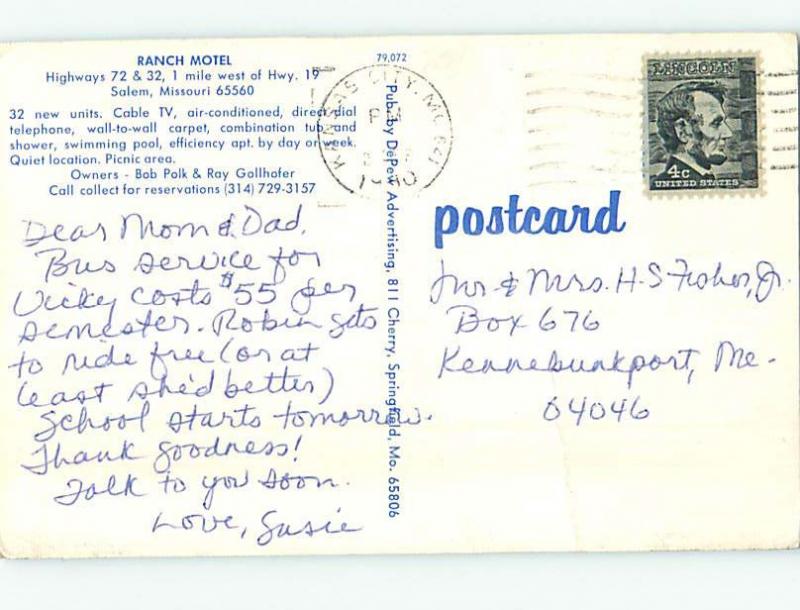 RANCH MOTEL
Highways 72 & 32, 1 mile west of Hwy. 19
Salem, Missouri 65560
32 new units. Cable TV, air-conditioned, direct dial
telephone, wall-to-wall carpet, combination tub and
shower, swimming pool, efficiency apt. by day or week.
Quiet location. Picnic area.
Owners - Bob Polk & Ray Gollhofer
Call collect for reservations (314) 729-3157
Dear Mom & Dad,
Bus service for
Vicky costs $55 per
semester. Robin gets
to ride free (or at
least she'd better)
School starts tomorrow.
Thank goodness!
Talk to you soon.
Love, Susie
79,072
Pub. by DePew Advertising, 811 Cherry, Springfield, Mo. 65806
KANSAS CITY, MO 641
LINCOLN
4c
UNITED STATES
postcard
Mr. & Mrs. H. S. Fisher, Jr.
Box 676
Kennebunkport, Me.
04046